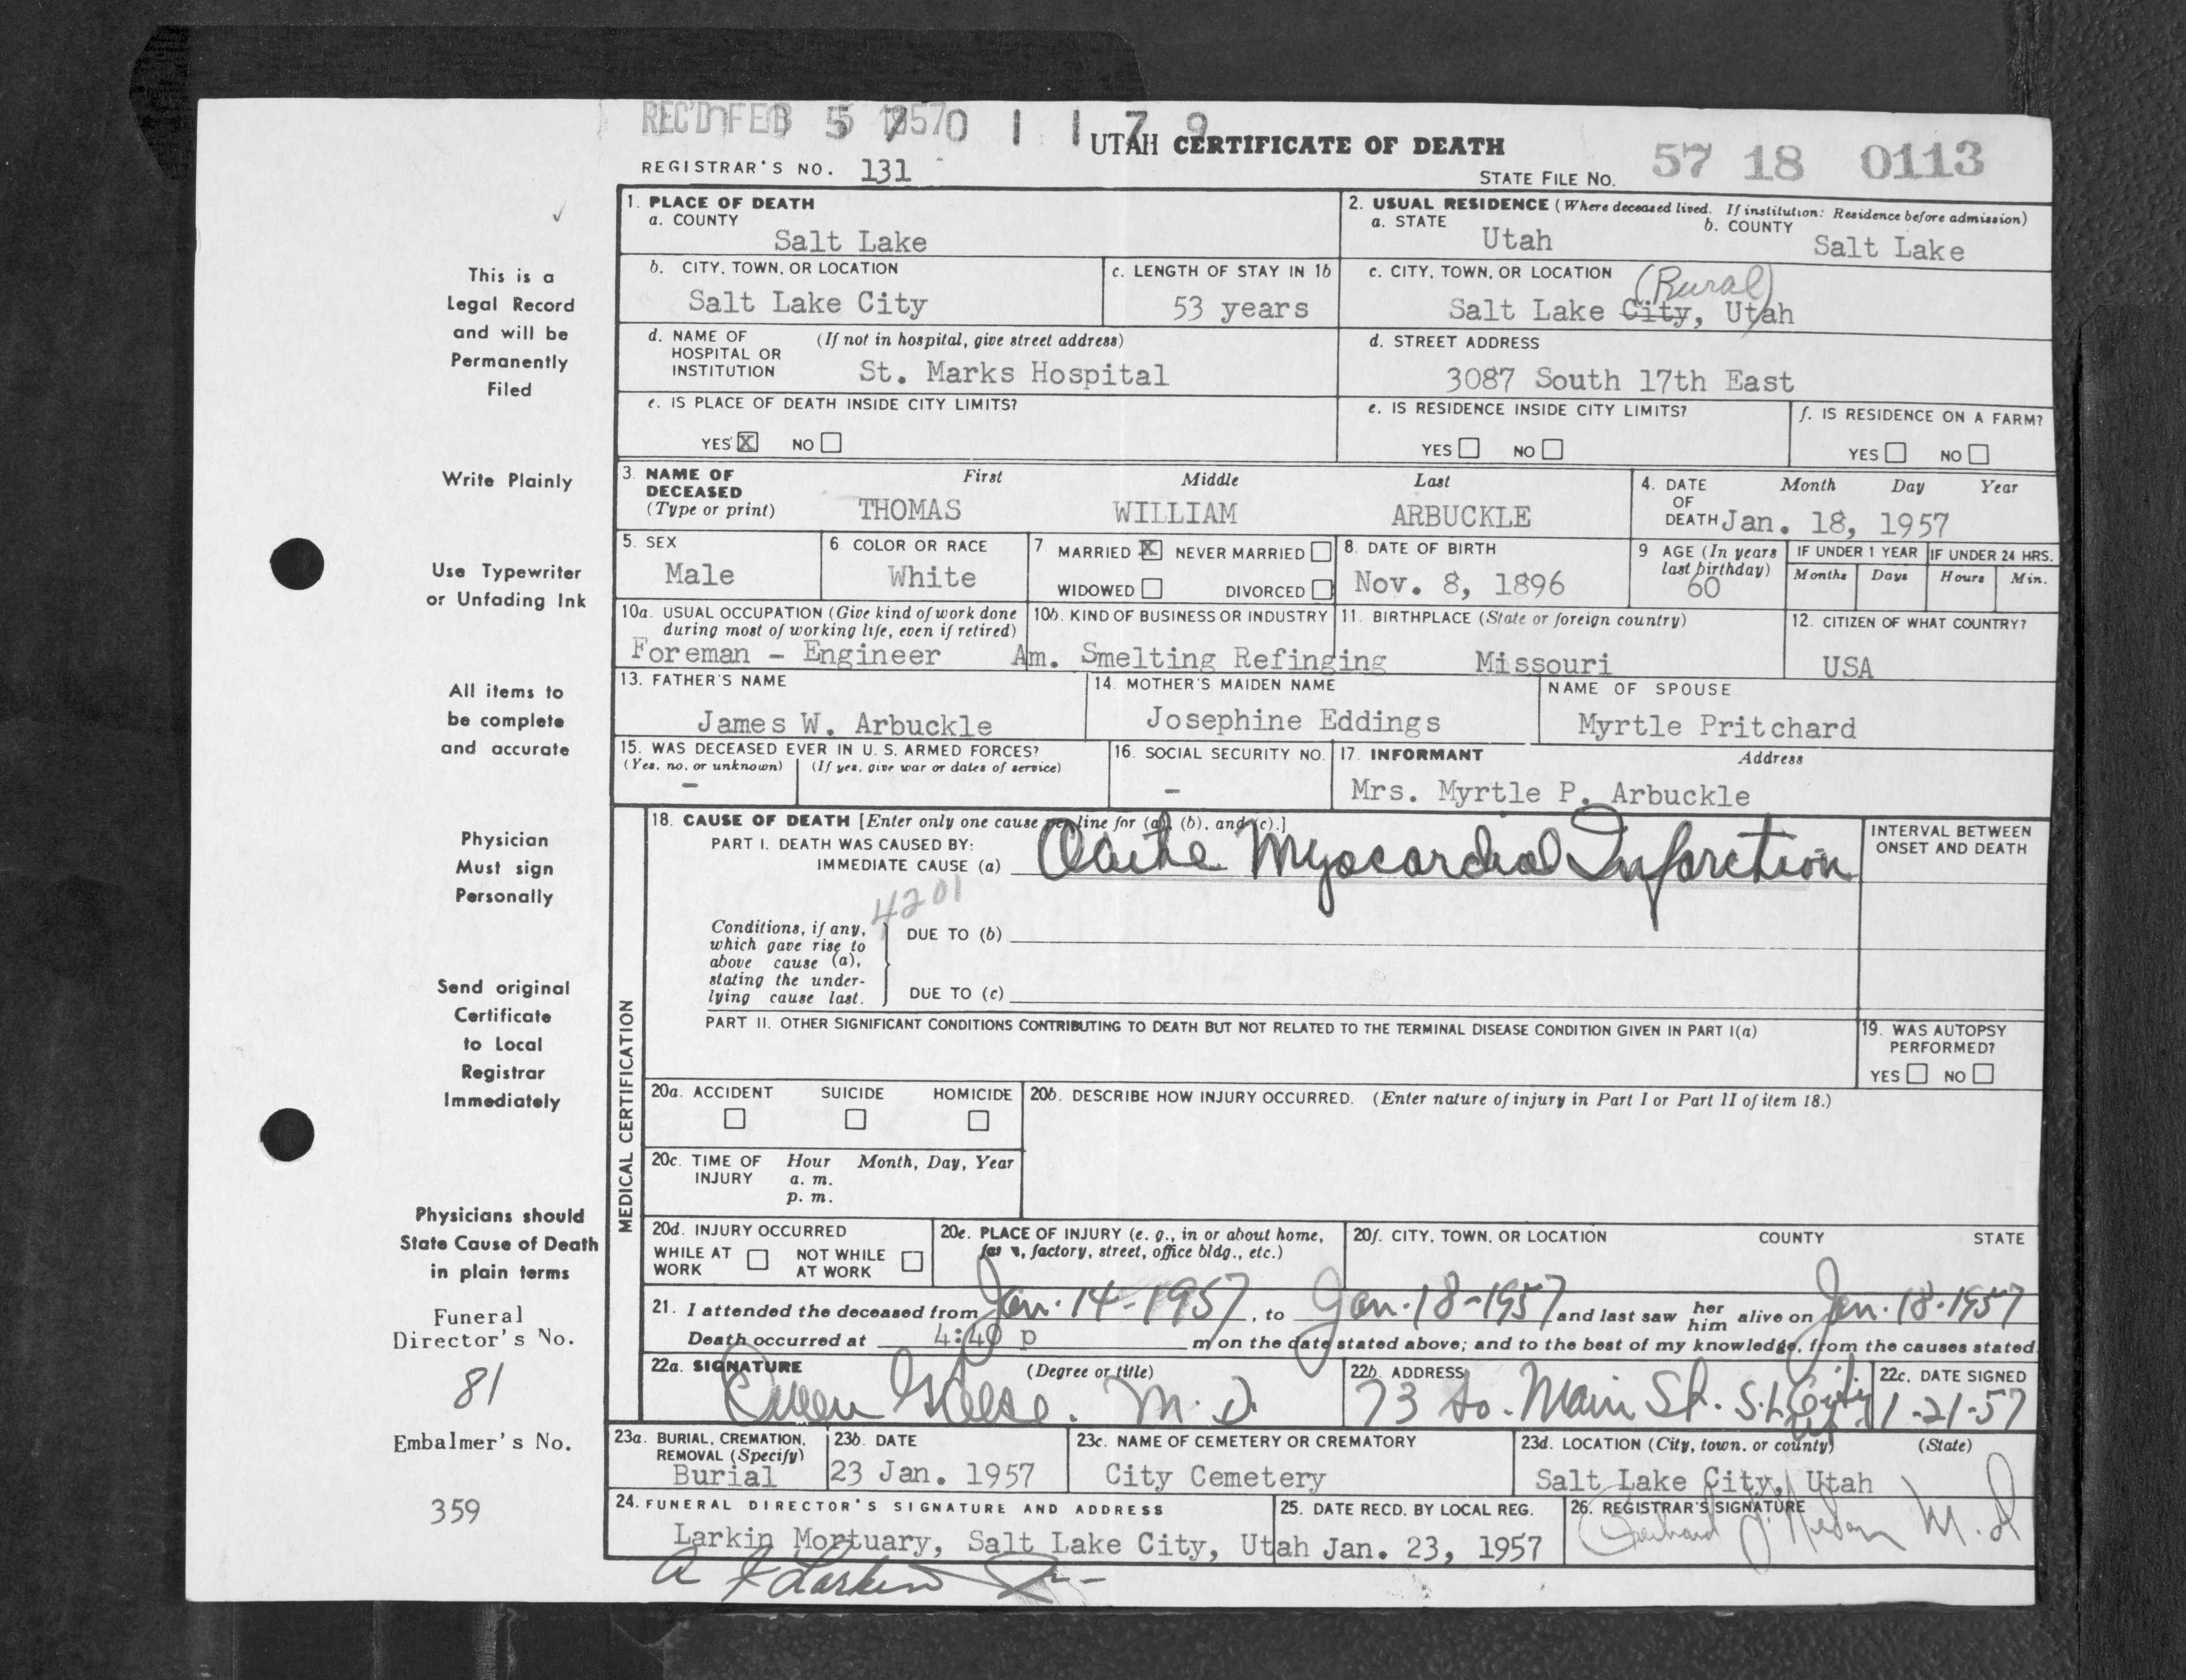 REC'D FEB 5 1957
5 7 0 1 1 7 9
UTAH CERTIFICATE OF DEATH
REGISTRAR'S NO. 131
STATE FILE NO. 57 18 0113
1. PLACE OF DEATH
a. COUNTY
Salt Lake
2. USUAL RESIDENCE (Where deceased lived. If institution: Residence before admission)
a. STATE b. COUNTY
Utah Salt Lake
b. CITY, TOWN, OR LOCATION
Salt Lake City
c. LENGTH OF STAY IN 1b
53 years
c. CITY, TOWN, OR LOCATION (Rural)
Salt Lake City, Utah
d. NAME OF (If not in hospital, give street address)
HOSPITAL OR
INSTITUTION St. Marks Hospital
d. STREET ADDRESS
3087 South 17th East
e. IS PLACE OF DEATH INSIDE CITY LIMITS?
YES X NO
e. IS RESIDENCE INSIDE CITY LIMITS?
YES NO
f. IS RESIDENCE ON A FARM?
YES NO
3. NAME OF First Middle Last
DECEASED
(Type or print) THOMAS WILLIAM ARBUCKLE
4. DATE Month Day Year
OF
DEATH Jan. 18, 1957
5. SEX
Male
6. COLOR OR RACE
White
7. MARRIED X NEVER MARRIED
WIDOWED DIVORCED
8. DATE OF BIRTH
Nov. 8, 1896
9 AGE (In years
last birthday)
60
IF UNDER 1 YEAR
Months Days
IF UNDER 24 HRS.
Hours Min.
10a. USUAL OCCUPATION (Give kind of work done
during most of working life, even if retired)
Foreman - Engineer
10b. KIND OF BUSINESS OR INDUSTRY
Am. Smelting Refinging
11. BIRTHPLACE (State or foreign country)
Missouri
12. CITIZEN OF WHAT COUNTRY?
USA
13. FATHER'S NAME
James W. Arbuckle
14. MOTHER'S MAIDEN NAME
Josephine Eddings
NAME OF SPOUSE
Myrtle Pritchard
15. WAS DECEASED EVER IN U. S. ARMED FORCES?
(Yes, no, or unknown) (If yes, give war or dates of service)
-
16. SOCIAL SECURITY NO.
-
17. INFORMANT Address
Mrs. Myrtle P. Arbuckle
MEDICAL CERTIFICATION
18. CAUSE OF DEATH [Enter only one cause per line for (a), (b), and (c).]
PART I. DEATH WAS CAUSED BY:
IMMEDIATE CAUSE (a) Acute Myocardial Infarction
INTERVAL BETWEEN
ONSET AND DEATH
4201
Conditions, if any,
which gave rise to
above cause (a),
stating the under-
lying cause last.
DUE TO (b)
DUE TO (c)
PART II. OTHER SIGNIFICANT CONDITIONS CONTRIBUTING TO DEATH BUT NOT RELATED TO THE TERMINAL DISEASE CONDITION GIVEN IN PART I(a)
19. WAS AUTOPSY
PERFORMED?
YES NO
20a. ACCIDENT SUICIDE HOMICIDE
20b. DESCRIBE HOW INJURY OCCURRED. (Enter nature of injury in Part I or Part II of item 18.)
20c. TIME OF Hour Month, Day, Year
INJURY a. m.
p. m.
20d. INJURY OCCURRED
WHILE AT NOT WHILE
WORK AT WORK
20e. PLACE OF INJURY (e. g., in or about home,
farm, factory, street, office bldg., etc.)
20f. CITY, TOWN, OR LOCATION COUNTY STATE
21. I attended the deceased from Jan. 14-1957, to Jan. 18-1957 and last saw her him alive on Jan. 18-1957
Death occurred at 4:40 p m on the date stated above; and to the best of my knowledge, from the causes stated.
22a. SIGNATURE (Degree or title)
Owen M. D.
22b. ADDRESS
73 So. Main St. S. L. City Ut.
22c. DATE SIGNED
1-21-57
23a. BURIAL, CREMATION,
REMOVAL (Specify)
Burial
23b. DATE
23 Jan. 1957
23c. NAME OF CEMETERY OR CREMATORY
City Cemetery
23d. LOCATION (City, town, or county) (State)
Salt Lake City, Utah
24. FUNERAL DIRECTOR'S SIGNATURE AND ADDRESS
Larkin Mortuary, Salt Lake City, Utah
A F Larkin Jr
25. DATE RECD. BY LOCAL REG.
Jan. 23, 1957
26. REGISTRAR'S SIGNATURE
M. D
This is a
Legal Record
and will be
Permanently
Filed
Write Plainly
Use Typewriter
or Unfading Ink
All items to
be complete
and accurate
Physician
Must sign
Personally
Send original
Certificate
to Local
Registrar
Immediately
Physicians should
State Cause of Death
in plain terms
Funeral
Director's No.
81
Embalmer's No.
359